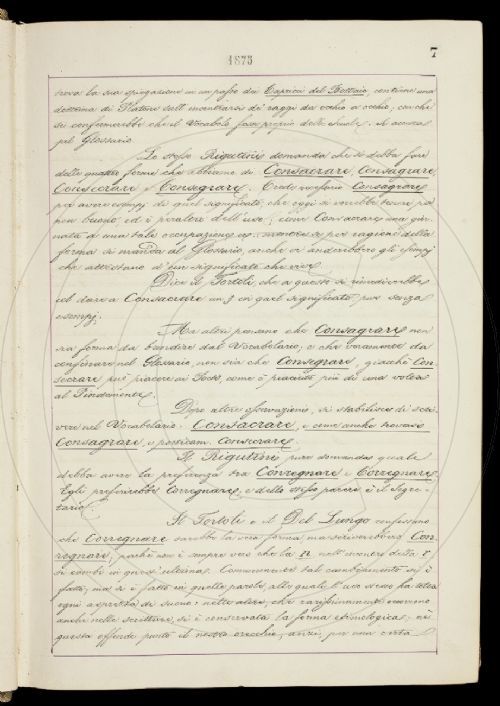 1873
7
trova la sua spiegazione in un passo dei Capricci del Bottaio, contiene una
dottrina di Platone sull' incontrarsi de' raggi da occhio a occhio, con che
si confermerebbe che il Vocabolo fosse proprio delle Scuole. Si accorda
pel Glossario.
Lo stesso Rigutini domanda che si debba fare
delle quattro forme che abbiamo di Consacrare, Consagrare,
Consecrare e Consegrare. Credo
può avere esempi di quel significato, che oggi si vorrebbe tenere per
men buono, ed è peraltro dell' uso; come Consacrare una gior-
nata a una tale occupazione ec. mentre se per ragione della
forma si manda al Glossario, anche vi anderebbero gli esempj
che attestano d' un significato che vive.
Dice il Tortoli, che a questo si rimedierebbe
col dare a Consacrare un § in quel significato pur senza
esempj.
Ma altri pensano che Consagrare non
sia forma da bandire dal Vocabolario; e che veramente da
confinare nel Glossario, non sia che Consegrare, giacchè Con-
secrare può piacere ai Poeti, come è piaciuto più di una volta
al Pindemonte.
Dopo altre osservazioni, si stabilisce di scri-
vere nel Vocabolario: Consacrare, e come anche trovasi
Consagrare, e poeticam. Consecrare.
Il Rigutini pure domanda quale
debba avere la preferenza tra Convegnare e Corregnare.
Egli preferirebbe Corregnare, e dello stesso parere è il Segre-
tario.
Il Tortoli e il Del Lungo confessano
che Corregnare sarebbe la vera forma, ma scriverebbero Con-
regnare, poichè non è sempre vero che la n nell' incontro della r
si cambi in quest' ultima. Comunemente tal cambiamento si è
fatto, ma si è fatto in quelle parole, alle quali l' uso stesso ha tolta
ogni asprezza di suono: nelle altre, che rarissimamente occorrono
anche nelle scritture, si è conservata la forma etimologica; nè
questa offende punto il nostro orecchio, anzi, per una certa